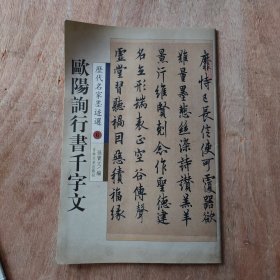 歷代名家墨迹選
歐陽詢行書千字文
靡恃己長信使可覆器欲
難量墨悲絲染詩讚羔羊
景行維賢剋念作聖德建
名立形端表正空谷傳聲
虛堂習聽禍因惡積福緣